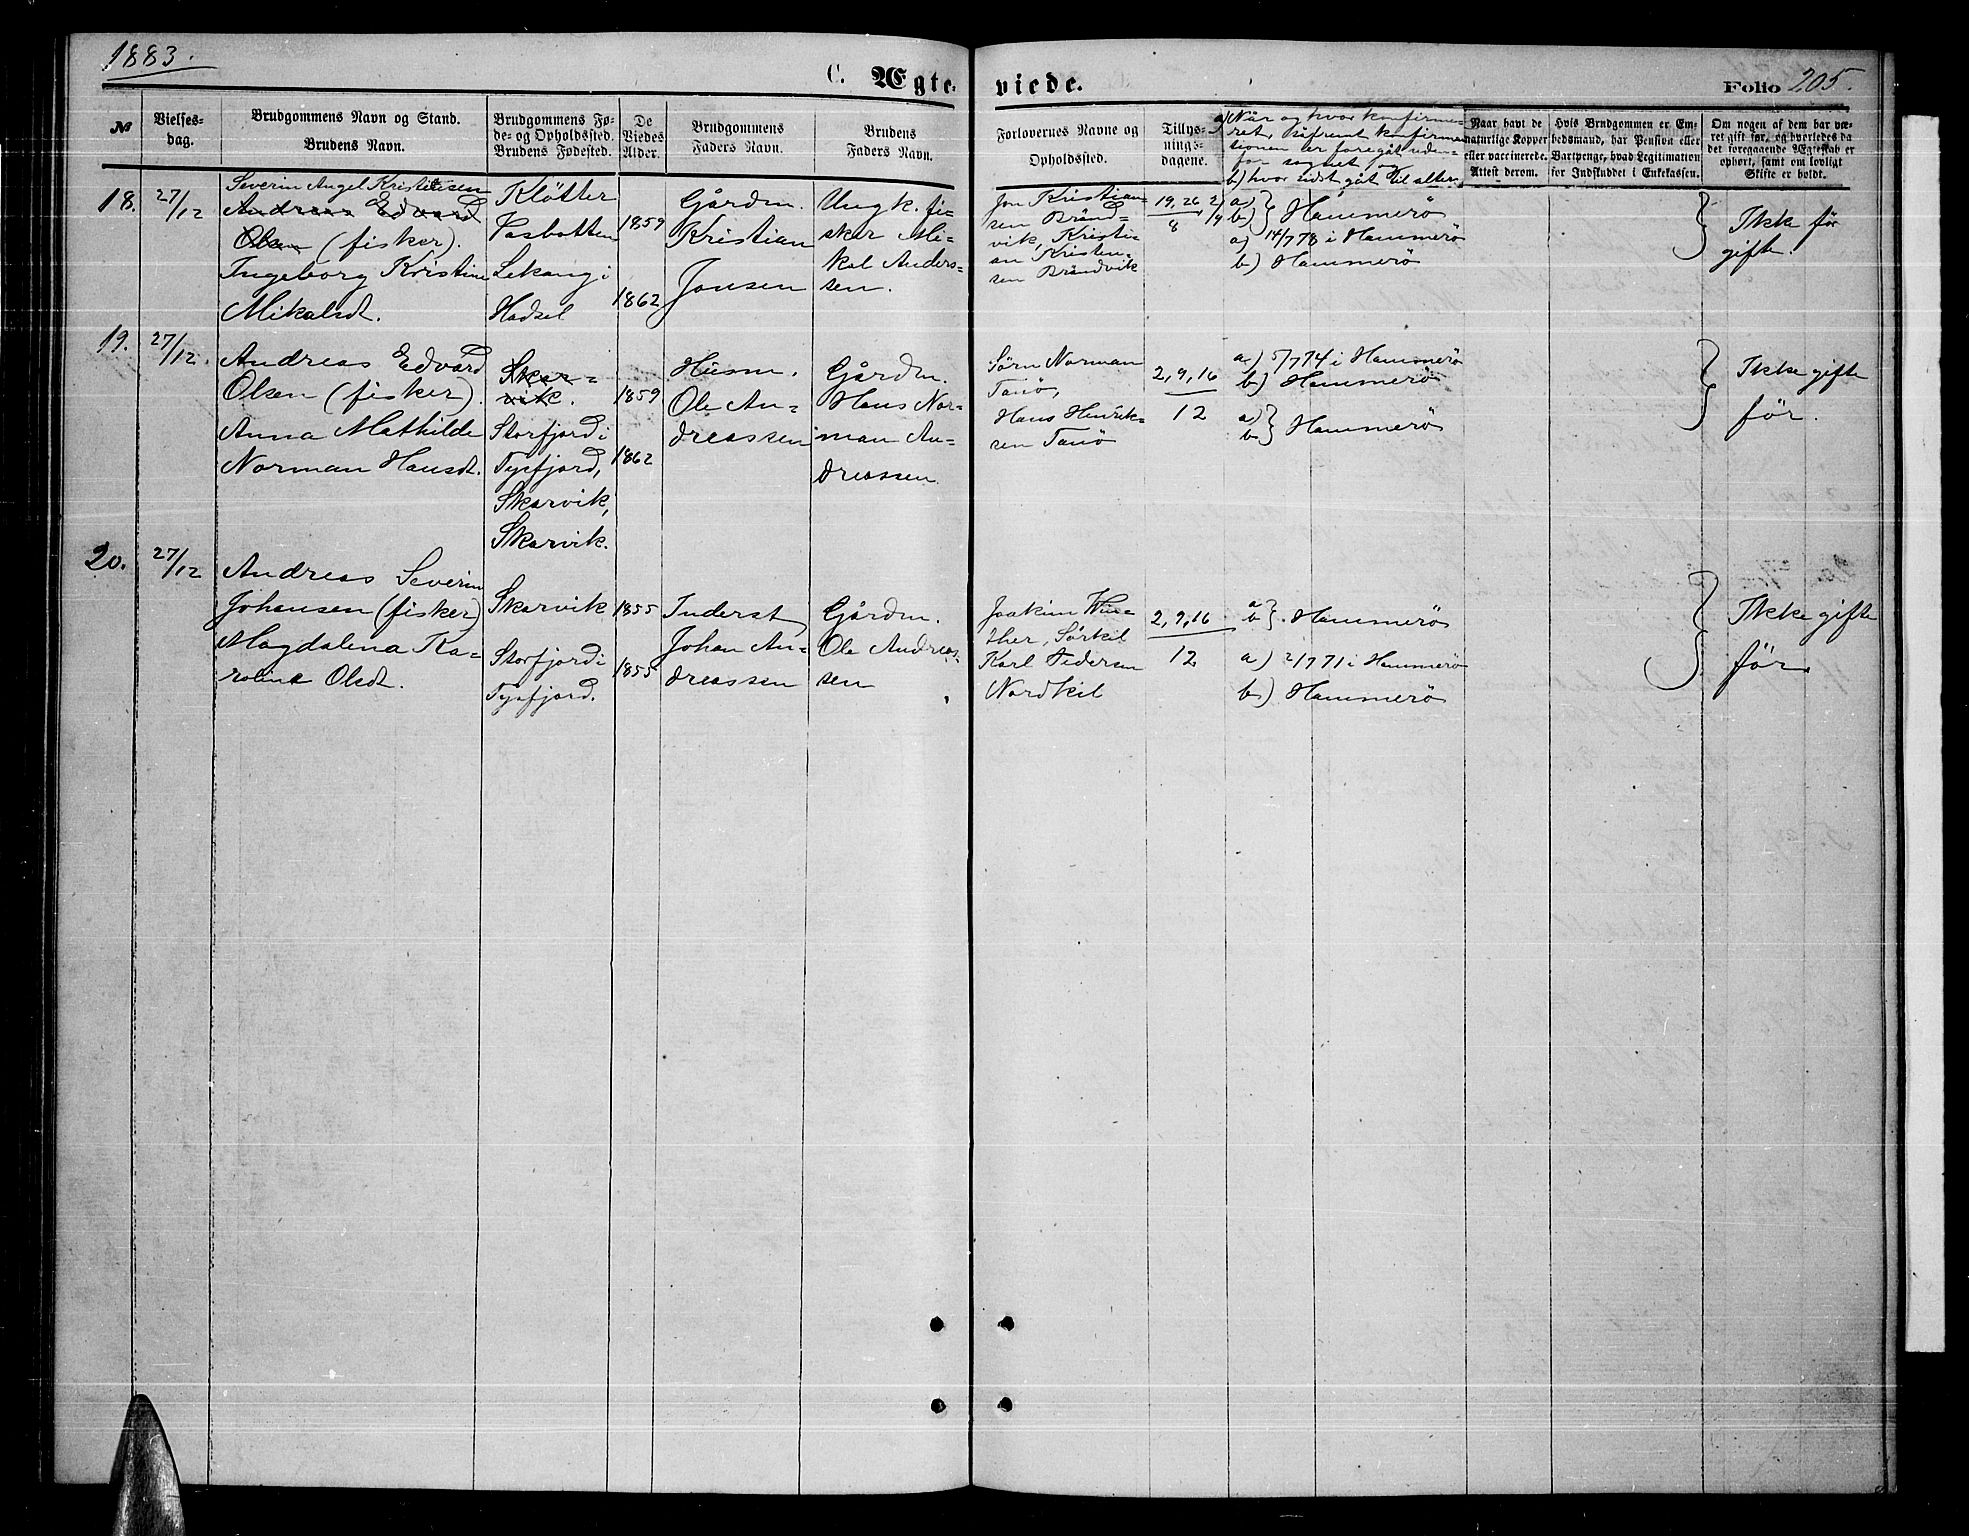 1883.
C. Ægte-
viede.
Folio 205.
№
Vielses-
dag.
Brudgommens Navn og Stand.
Brudens Navn.
Brudgommens Fø-
de- og Opholdssted.
Brudens Fødested.
De
Viedes
Alder.
Brudgommens
Faders Navn.
Brudens
Faders Navn.
Forlovernes Navne og
Opholdssted.
Tillys-
nings-
dagene.
a) Når og hvor konfirme-
ret, såfremt konfirma-
tionen er foregåt uden-
for sognet og
b) hvor sidst gåt til alters
Naar havt de
naturlige Kopper
eller vaccinerede.
Attest derom.
Hvis Brudgommen er Em-
bedsmand, har Pension eller
Vartpenge, hvad Legitimation
for Indskuddet i Enkekassen.
Om nogen af dem har væ-
ret gift før, og hvorledes da
det foregaaende Ægteskab er
ophørt, samt om lovligt
Skifte er holdt.
18.
27/12
Severin Angel Kristiansen
Andreas Edvard
Olsen (fisker).
Ingeborg Kristine
Mikalsdt.
Kløtter
Vasbotten
Lekang i
Hadsel
1859
1862
Gårdm.
Kristian
Jonsen
Ungk. fi-
sker Mi-
kal Anders-
sen.
Jon Kristian-
sen Brånd-
vik, Kristi-
an Kristen-
sen Bråndvik
19, 26 2/9
8
a)
b) } Hammerö
a) 14/7 78 i Hammerö
b) Hammerö
Ikke før
gifte.
19.
27/12.
Andreas Edvard
Olsen (fisker).
Anna Mathilde
Norman Hansdt.
Skar-
vik.
Storfjord i
Tysfjord,
Skarvik,
Skarvik.
1859
1862
Husm.
Ole An-
dreassen
Gårdm.
Hans Nor-
man An-
dreassen
Sørn Norman
Tanö,
Hans Henrik-
sen Tanö
2, 9, 16
12
a) 5/7 74 i Hammerö
b) Hammerö
a)
b) } Hammerö
Ikke gifte
før.
20.
27/12
Andreas Severin
Johansen (fisker)
Magdalena Ka-
roline Olsdt.
Skarvik
Storfjord i
Tysfjord.
1855
1855
Inderst
Johan An-
dreassen
Gårdm.
Ole Andreas-
sen
Joakim
Sørkil
Karl Pedersen
Nordkil
2, 9, 16
12
a
b } Hammerö
a) 2/7 71 i Hammerö
b) Hammerö
Ikke gifte
før